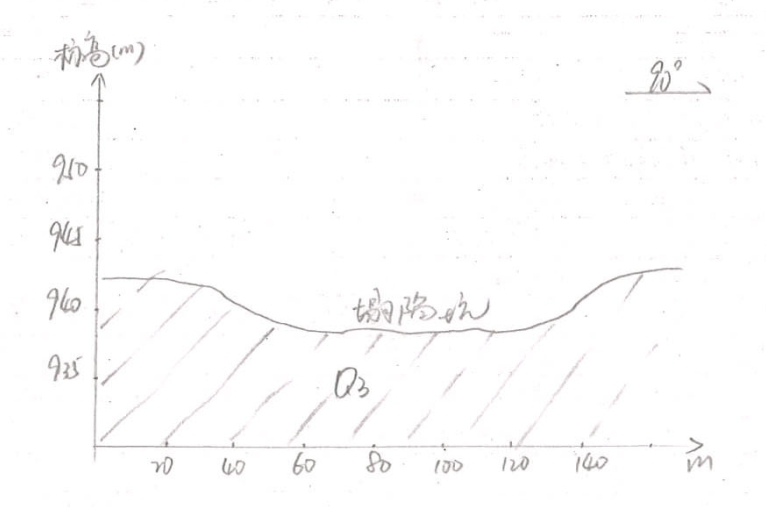 标高(m)
90°
950
945
940
935
塌陷坑
Q3
20 40 60 80 100 120 140 m